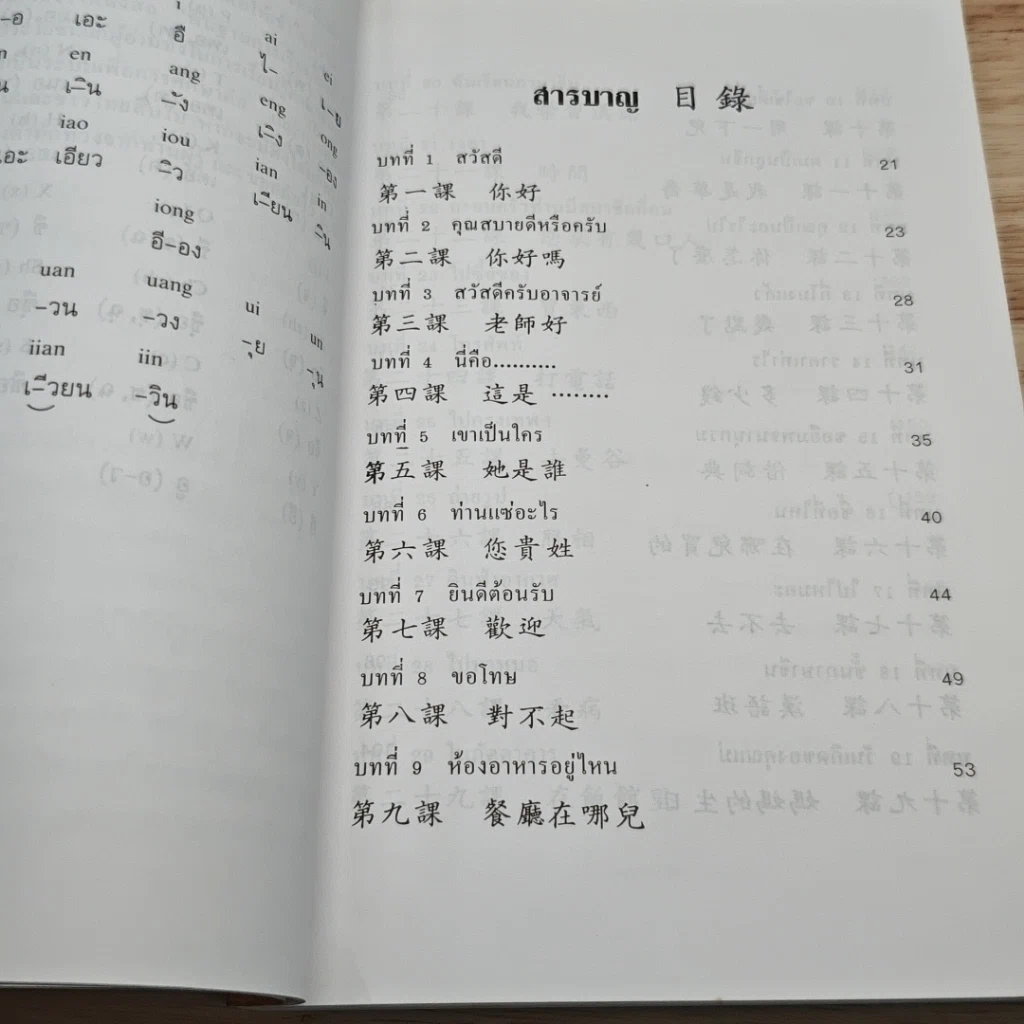 -อ เอะ อี ai ei
en ang eng เ-ย
เ-ิน -ัง เ-ิง ong
iao iou ian -อง
เอียว -ิว เ-ียน in
iong -ิน
อี-อง
uan uang ui un
-วน -วง -ุย -ุน
iian iin
เ-ีวยน -วิน
สารบาญ 目錄
บทที่ 1 สวัสดี 21
第一課 你好
บทที่ 2 คุณสบายดีหรือครับ 23
第二課 你好嗎
บทที่ 3 สวัสดีครับอาจารย์ 28
第三課 老師好
บทที่ 4 นี่คือ.......... 31
第四課 這是 ........
บทที่ 5 เขาเป็นใคร 35
第五課 她是誰
บทที่ 6 ท่านแซ่อะไร 40
第六課 您貴姓
บทที่ 7 ยินดีต้อนรับ 44
第七課 歡迎
บทที่ 8 ขอโทษ 49
第八課 對不起
บทที่ 9 ห้องอาหารอยู่ไหน 53
第九課 餐廳在哪兒